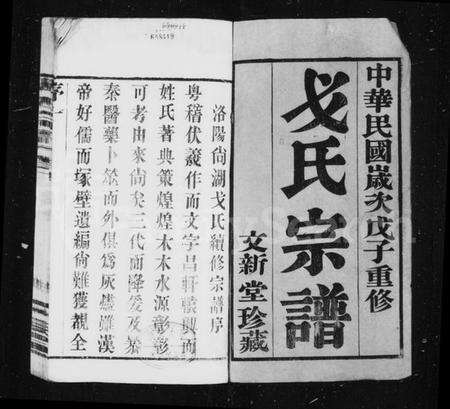 中華民國歲次戊子重修
戈氏宗譜
文新堂珍藏
洛陽尙湖戈氏續修宗譜序
粤稽伏羲作而文字昌軒轅興而
姓氏著典策煌煌木本水源彰彰
可考由來尙矣三代而降爰及嬴
秦醫藥卜筮而外俱爲灰燼雖漢
帝好儒而塚壁遺編尙難獲覩全
序
一